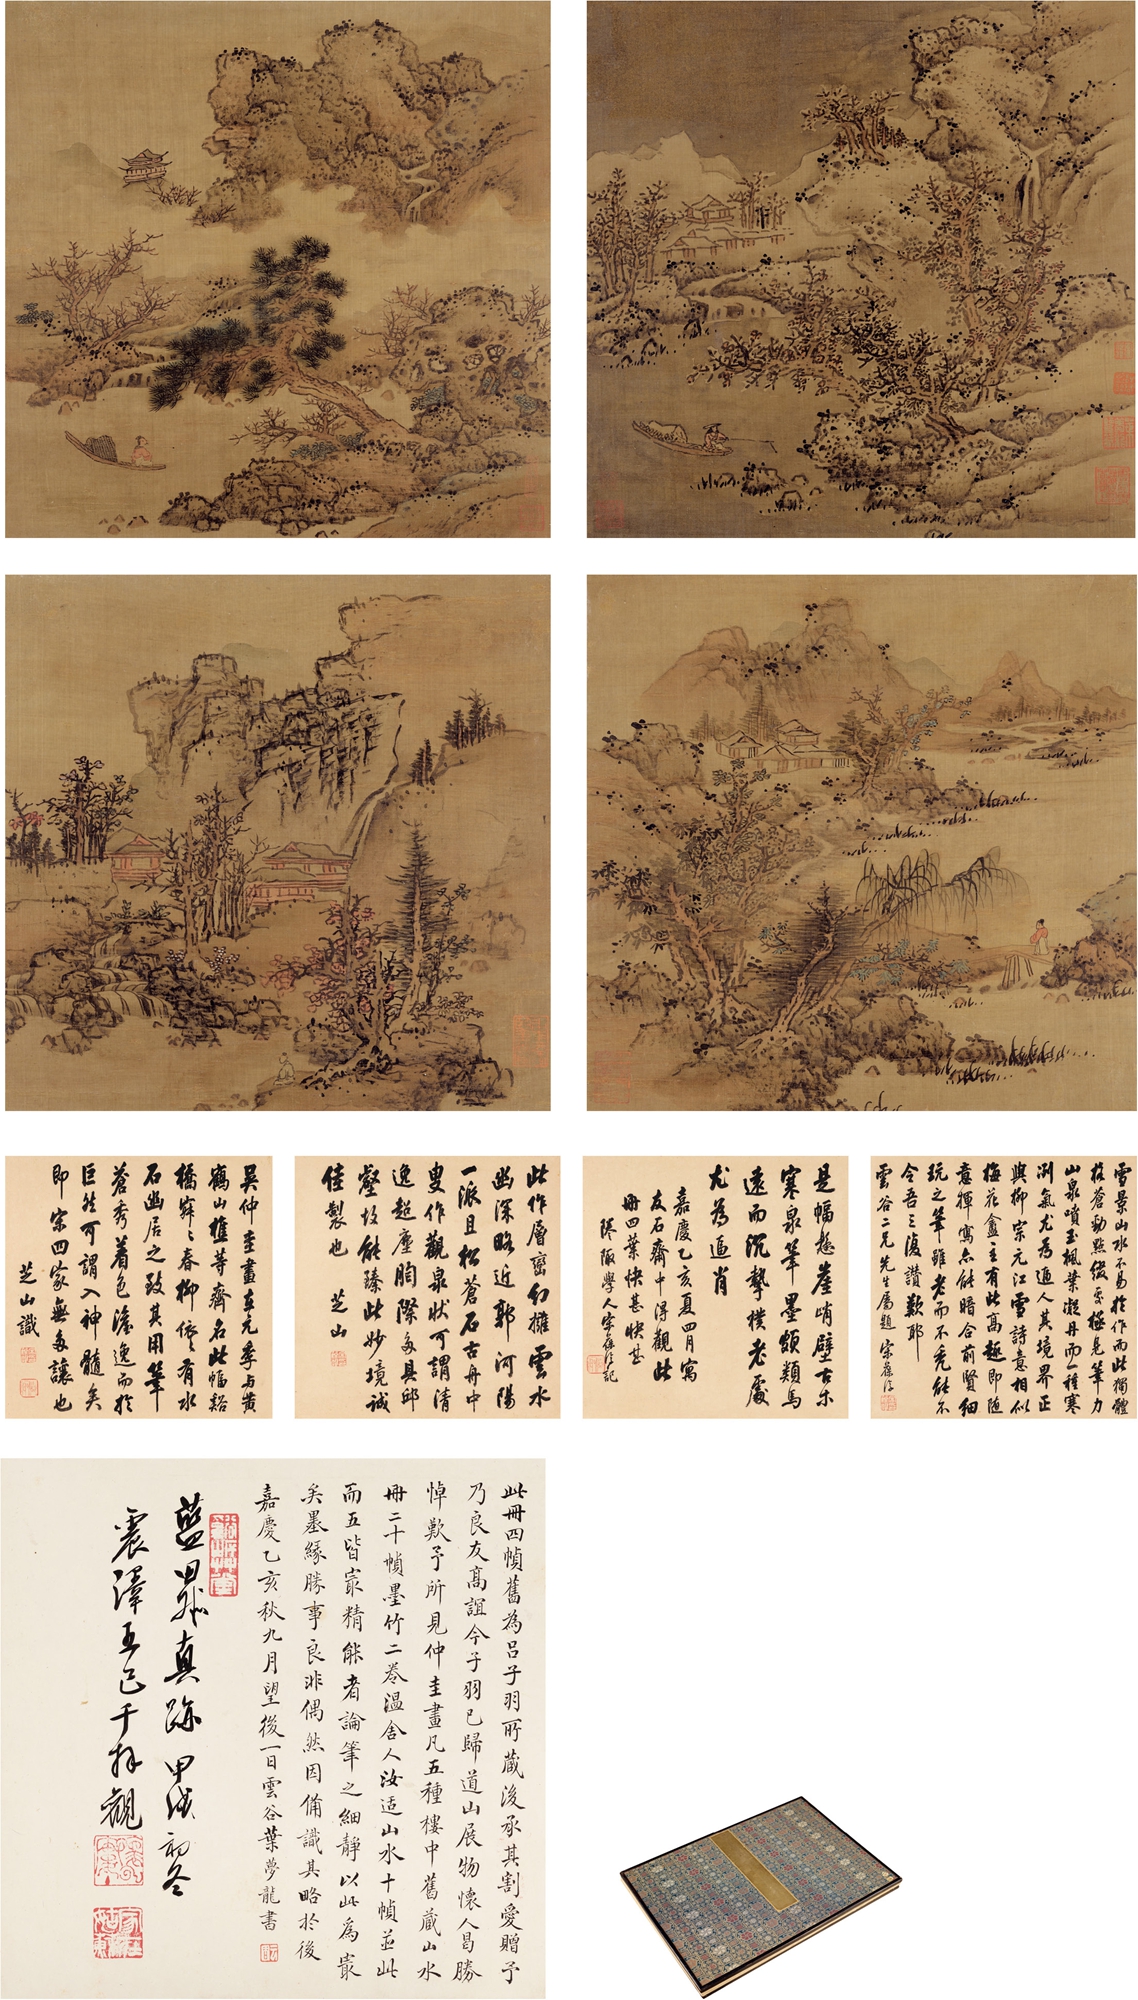 雪景山水不易於作而此獨體
格蒼勁點綴更極見筆力
山泉噴玉楓葉凝丹而一種寒
冽氣尤為逼人其境界正
與柳宗元江雪詩意相似
梅花盦主有此高趣即随
意揮寫亦能暗合前賢細
玩之筆雖老而不禿能不
令吾三復讚歎耶
雲谷二兄先生屬題 宋葆淳
是幅懸崖峭壁古木
寒泉筆墨頗類馬
遠而沉摯樸老處
尤為逼肖
嘉慶乙亥夏四月寓
友石齋中得觀此
冊四葉快甚快甚
宋葆淳記
此作層巒幻擁雲水
幽深略近郭河陽
一派且松蒼石古舟中
叟作觀泉狀可謂清
逸超塵胸際多具邱
壑故能臻此妙境誠
佳製也 芝山
吳仲圭畫在元季与黃
鶴山樵等齊名此幅谿
橋寂寂春柳依依有水
石幽居之致其用筆
蒼秀着色澹逸而於
巨然可謂入神髓矣
即宋四家無多讓也
芝山識
此冊四幀舊為呂子羽所藏後承其割愛贈予
乃良友高誼今子羽已歸道山展物懷人曷勝
悼歎予所見仲圭畫凡五種樓中舊藏山水
冊二十幀墨竹二卷溫舍人汝适山水十幀並此
而五皆最精能者論筆之細靜以此為最
矣墨緣勝事良非偶然因備識其略於後
嘉慶乙亥秋九月望後一日雲谷葉夢龍書
藍田叔真跡 甲戌初冬
震澤王己千拜觀